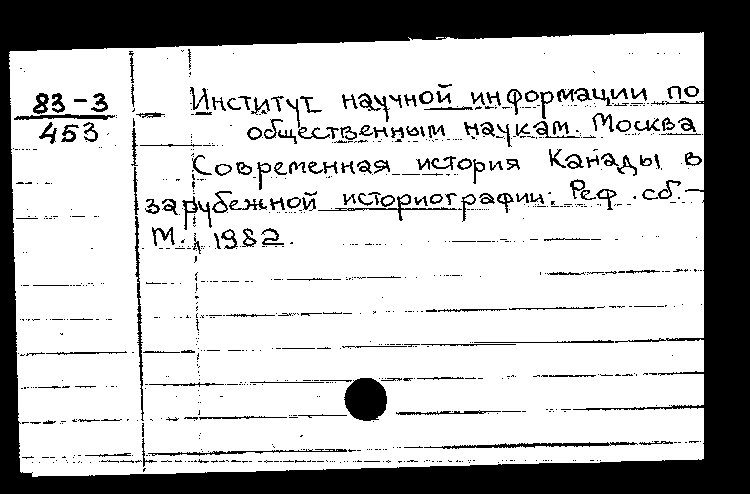 83-3
453
Институт научной информации по
общественным наукам. Москва
Современная история Канады в
зарубежной историографии: Реф. сб.-
М., 1982.